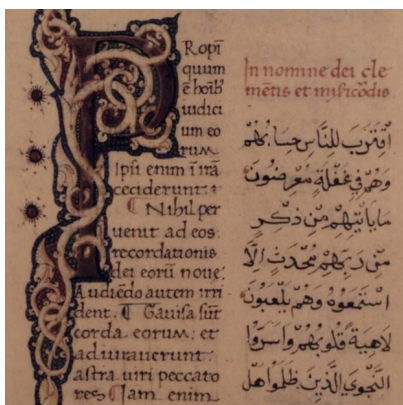 PRopĩ
quum
ẽ hoib̃
iudici
um eo
rum
Ipsi enim ĩ irã
ceciderunt:
¶ Nihil per
uenit ad eos:
recordationis
dei eorũ noue:
Audiẽdo autem irri
dent. ¶ Gauisa sũt
corda eorum: et
adiurauerunt:
astra uiri peccato
res ¶ Iam enim
In nomine dei cle
mẽtis et misicõdis
اقْتَرَبَ لِلنَّاسِ حِسَابُهُمْ
وَهُمْ فِي غَفْلَةٍ مُعْرِضُونَ
مَا يَاتِيهِمْ مِنْ ذِكْرٍ
مِنْ رَبِّهِمْ مُحْدَثٍ اِلَّا
اسْتَمَعُوهُ وَهُمْ يَلْعَبُونَ
لَاهِيَةً قُلُوبُهُمْ وَاَسَرُّوا
النَّجْوَي الَّذِينَ ظَلَمُوا هَلْ